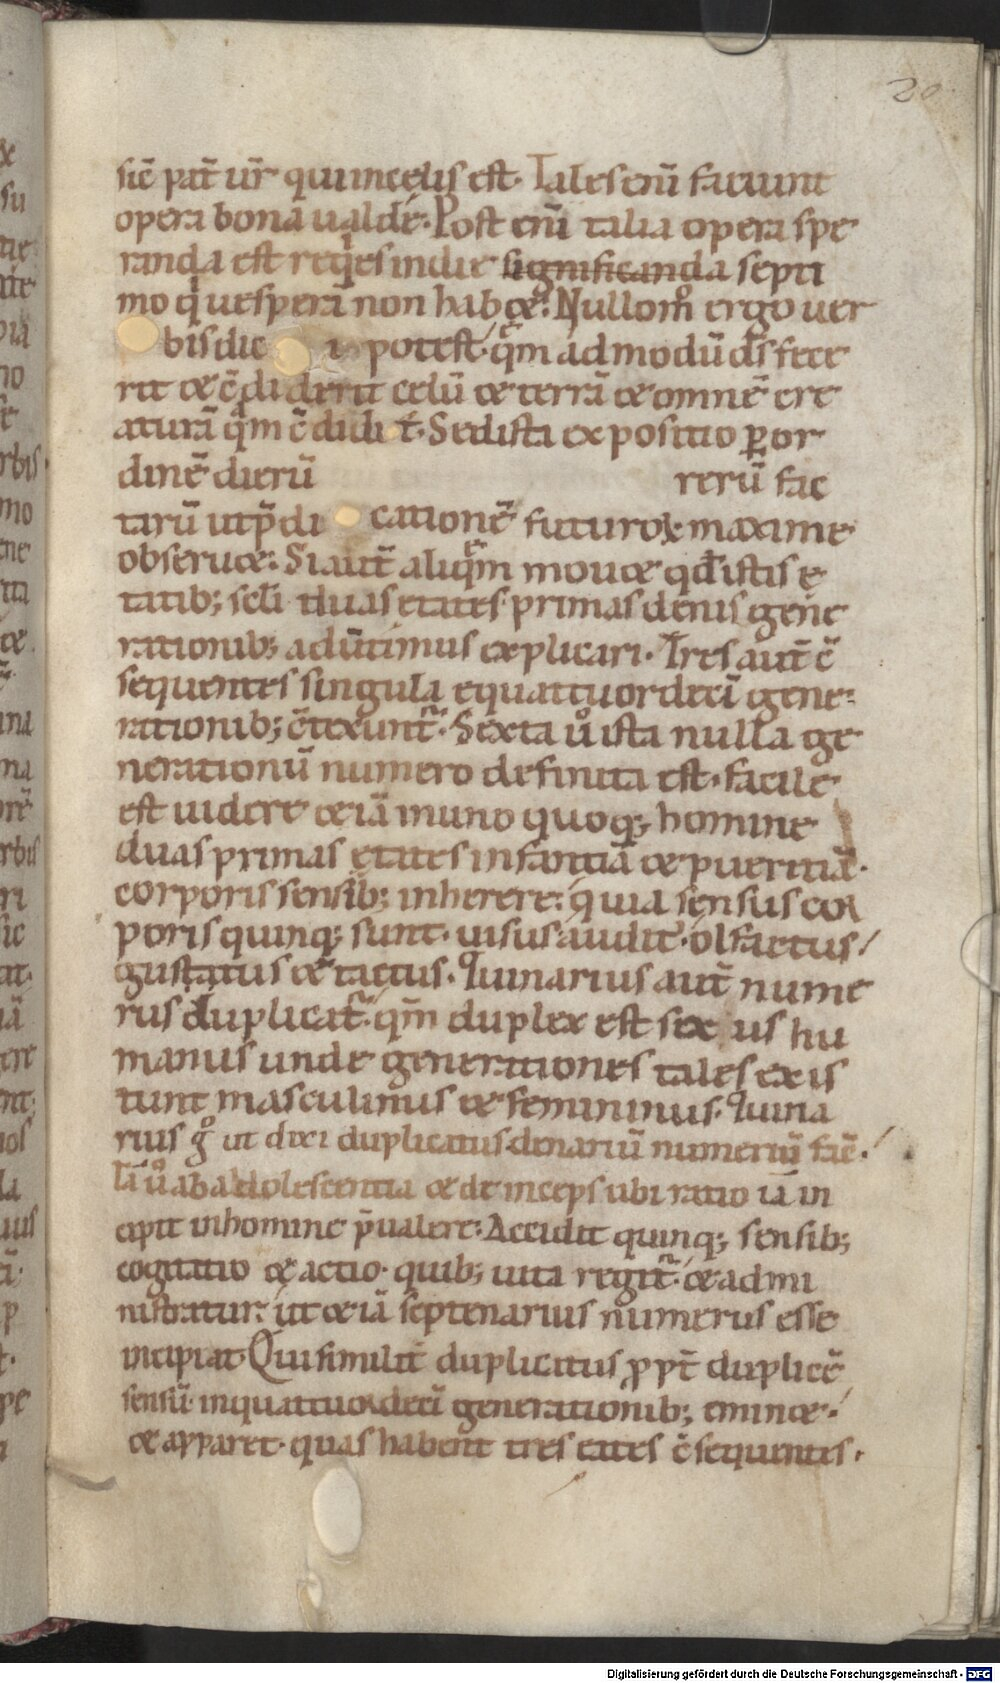 20
sic̄ pat̄ ur̄ qui incelis est. Tales eni̅ faciunt
opera bona ualde. Post eni̅ talia opera spe
randa est reqͥes in die significanda septi
mo qͥ uesperā non habet. Nullom̊ ergo uer
bis dic i potest. qͤm admodū ds̄ fece
rit et c̄diderit celū et terrā et omnē cre
aturā qͣm c̄didit. Sed ista expositio ꝑ or
dinē dierū rerū fac
tarū ut p̄di cationē futuroꝝ maxime
obseruet. Si aut̄ aliqͤm mouet qd̄ istis ę
tatib; scl̄i duas ętates primas denis gene
rationib; aduertimus explicari. Tres aut̄ c̄
sequentes singula equattuordeci̅ gene-
rationib; c̄texunt᷑. Sexta ůista nulla ge
nerationū numero definita est. facile
est uidere et iā in uno quoq; homine
duas primas ętates infantiā et pueritiā.
corporis sensib; inherere. quia sensus cor
poris quinq; sunt. uisus audit᷑. olfactus
gustatus et tactus. Quinarius aut̄ nume
rus duplicat᷑. qm̄ duplex est sex us hu
manus unde generationes tales exis
tunt masculinus et femininus. Quina
rius g̊ ut dixi duplicatus denariū numerū fac̄.
Iā ů ab adolescentia et de inceps ubi ratio iā in
cipit in homine p̄ualere. Accidit quinq; sensib;
cogitatio et actio. quib; uita regit᷑. et admi
nistratur. ut et iā septenarius numerus esse
incipiat. Qui similit̄ duplicatus ꝓpt̄ duplicē
sensū. inquattuordeci̅ generationib; eminet.
et apparet. quas habent tres etates c̄sequentes.
Digitalisierung gefördert durch die Deutsche Forschungsgemeinschaft - DFG